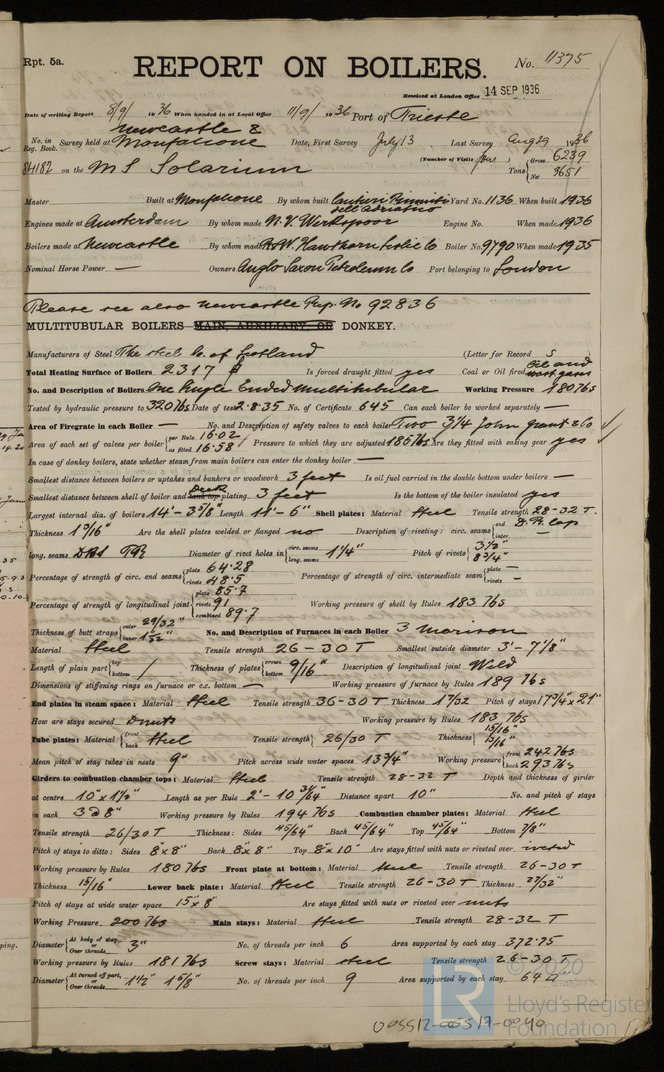 Rpt. 5a.
REPORT ON BOILERS.
No. 11375
Received at London Office 14 SEP 1936
Date of writing Report 8/9/ 1936 When handed in at Local Office 11/9/ 1936 Port of Trieste
Newcastle &
No. in Reg. Book. Survey held at Monfalcone Date, First Survey July 13 Last Survey Aug 29 1936
(Number of Visits four)
84182 on the M S Solarium Tons {Gross 6239 Net 3651
Master Built at Monfalcone By whom built Cantieri Riuniti dell'Adriatico Yard No. 1136 When built 1936
Engines made at Amsterdam By whom made N. V. Werkspoor Engine No. When made 1936
Boilers made at Newcastle By whom made R & W. Hawthorn Leslie Co Boiler No. 9790 When made 1935
Nominal Horse Power — Owners Anglo Saxon Petroleum Co Port belonging to London
Please see also Newcastle Rep. No 92836
MULTITUBULAR BOILERS MAIN, AUXILIARY OR DONKEY.
Manufacturers of Steel The Steel Co. of Scotland (Letter for Record S
Total Heating Surface of Boilers 2317 Is forced draught fitted yes Coal or Oil fired Oil and waste gases
No. and Description of Boilers One Single Ended Multitubular Working Pressure 180 lbs
Tested by hydraulic pressure to 320 lbs Date of test 2.8.35 No. of Certificate 645 Can each boiler be worked separately —
Area of Firegrate in each Boiler — No. and Description of safety valves to each boiler Two 3 1/4 John Grant & Co
Area of each set of valves per boiler {per Rule 16.02 as fitted 16.58 Pressure to which they are adjusted 185 lbs Are they fitted with easing gear yes
In case of donkey boilers, state whether steam from main boilers can enter the donkey boiler —
Smallest distance between boilers or uptakes and bunkers or woodwork 3 feet Is oil fuel carried in the double bottom under boilers —
Smallest distance between shell of boiler and tank top Deck plating 3 feet Is the bottom of the boiler insulated yes
Largest internal dia. of boilers 14'-3 5/8" Length 11'-6" Shell plates: Material Steel Tensile strength 28-32 T.
Thickness 1 3/16" Are the shell plates welded or flanged no Description of riveting: circ. seams {end D.R. lap inter. —
long. seams TR Diameter of rivet holes in {circ. seams long. seams 1 1/4" Pitch of rivets {3 1/2" 8 3/4"
Percentage of strength of circ. end seams {plate 64.28 rivets 48.5 Percentage of strength of circ. intermediate seam {plate — rivets —
Percentage of strength of longitudinal joint {plate 85.7 rivets 91 combined 89.7 Working pressure of shell by Rules 183 lbs
Thickness of butt straps {outer 29/32" inner 1 1/32" No. and Description of Furnaces in each Boiler 3 Morison
Material Steel Tensile strength 26-30 T Smallest outside diameter 3'-7 1/8"
Length of plain part {top bottom / Thickness of plates {crown bottom 9/16" Description of longitudinal joint Weld
Dimensions of stiffening rings on furnace or c.c. bottom — Working pressure of furnace by Rules 189 lbs
End plates in steam space: Material Steel Tensile strength 26-30 T Thickness 1 7/32 Pitch of stays 17 3/4 x 21"
How are stays secured D nuts Working pressure by Rules 183 lbs
Tube plates: Material {front back Steel Tensile strength {26/30 T Thickness {15/16" 13/16"
Mean pitch of stay tubes in nests 9" Pitch across wide water spaces 13 3/4" Working pressure {front 242 lbs back 293 lbs
Girders to combustion chamber tops: Material Steel Tensile strength 28-32 T Depth and thickness of girder
at centre 10" x 1 1/2" Length as per Rule 2'-10 Distance apart 10" No. and pitch of stays
in each 3 @ 8" Working pressure by Rules 194 lbs Combustion chamber plates: Material Steel
Tensile strength 26/30 T Thickness: Sides 45/64" Back 45/64" Top 45/64" Bottom 7/8"
Pitch of stays to ditto: Sides 8" x 8" Back 8" x 8" Top 8" x 10" Are stays fitted with nuts or riveted over riveted
Working pressure by Rules 180 lbs Front plate at bottom: Material Steel Tensile strength 26-30 T
Thickness 15/16" Lower back plate: Material Steel Tensile strength 26-30 T Thickness 27/32"
Pitch of stays at wide water space 15" x 8" Are stays fitted with nuts or riveted over nuts
Working Pressure 200 lbs Main stays: Material Steel Tensile strength 28-32 T
Diameter {At body of stay, or Over threads 3" No. of threads per inch 6 Area supported by each stay 372.75
Working pressure by Rules 181 lbs Screw stays: Material Steel Tensile strength 26-30 T
Diameter {At turned off part, or Over threads 1 1/2" 1 5/8" No. of threads per inch 9 Area supported by each stay 64
© 2020
LR
Lloyd's Register
Foundation